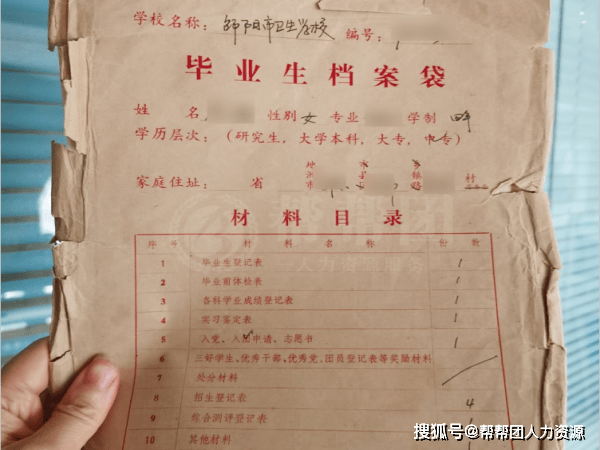 学校名称: 邵阳市卫生学校 编号:
毕业生档案袋
姓 名 性别 女 专业 学制
学历层次: (研究生, 大学本科, 大专, 中专)
家庭住址: 省 地洲市 市县 乡镇路 村
材料目录
序号 材料名称 份数
1 毕业生登记表 1
2 毕业前体检表
3 各科学业成绩登记表 1
4 实习鉴定表 1
5 入党、入团申请、志愿书 1
6 三好学生、优秀干部、优秀党、团员登记表等奖励材料
7 处分材料
8 招生登记表 4
9 综合测评登记表 1
10 其他材料
搜狐号@帮帮团人力资源